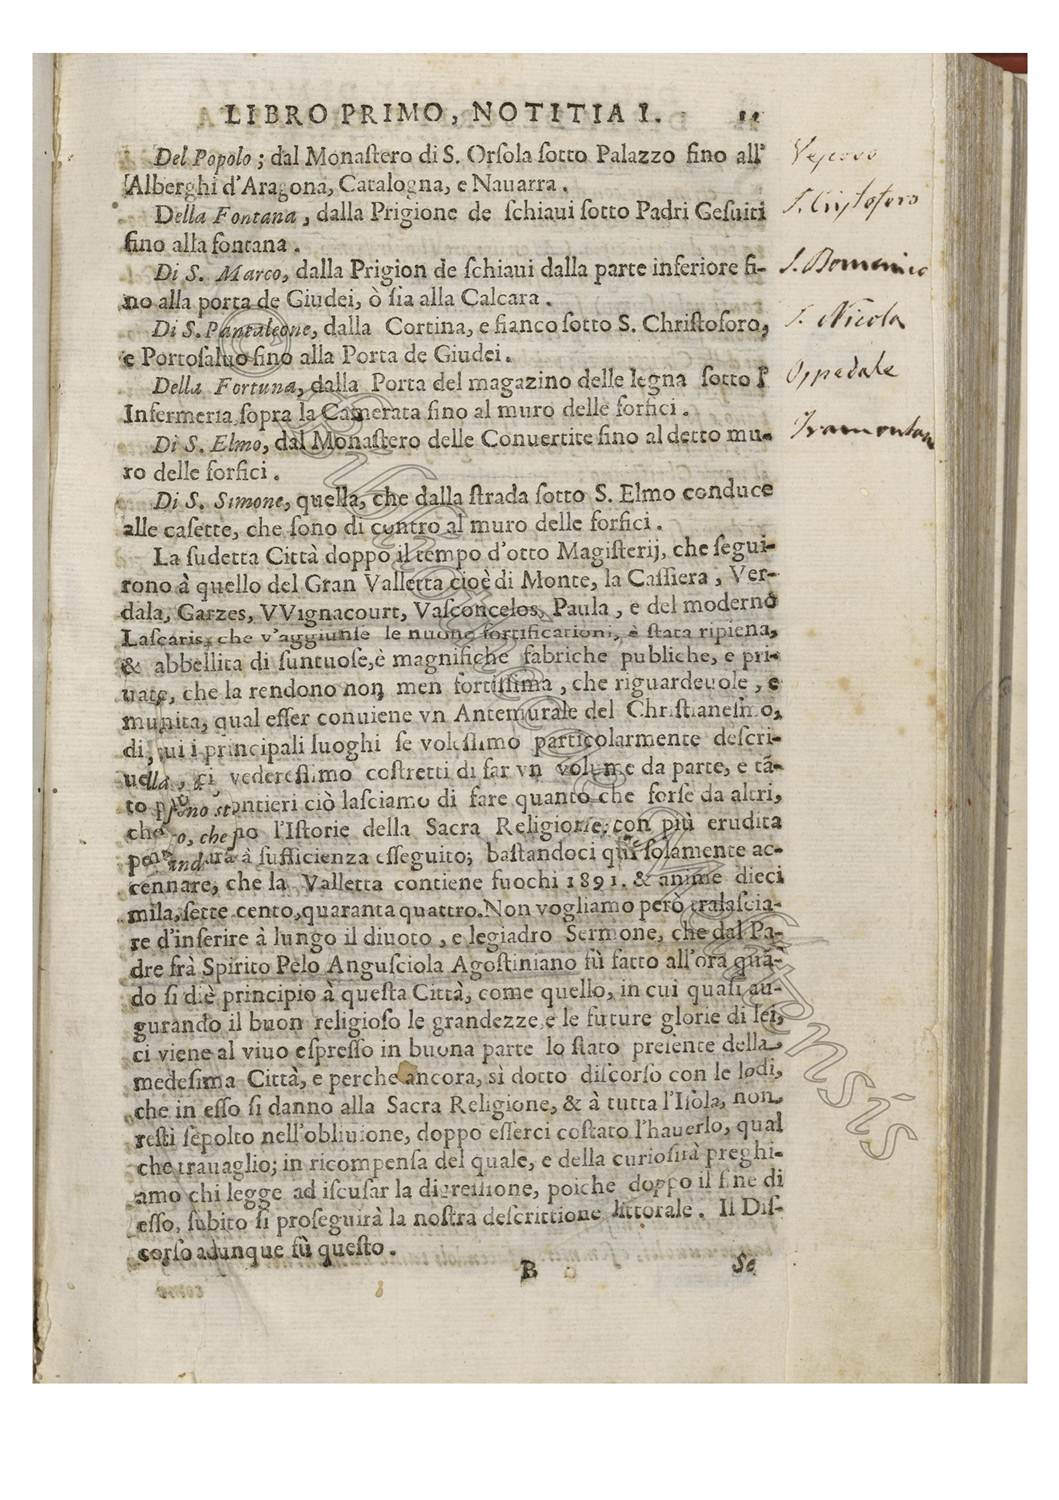 LIBRO PRIMO, NOTITIA I. 11
Del Popolo; dal Monaſtero di S. Orſola ſotto Palazzo fino all' Veſcovo
Alberghi d'Aragona, Catalogna, e Nauarra.
Della Fontana, dalla Prigione de ſchiaui ſotto Padri Geſuiti S. Criſtoforo
fino alla fontana.
Di S. Marco, dalla Prigion de ſchiaui dalla parte inferiore fi- S. Domenico
no alla porta de Giudei, ò ſia alla Calcara.
Di S. Pantaleone, dalla Cortina, e fianco ſotto S. Chriſtoforo, S. Nicola
e Portoſaluo fino alla Porta de Giudei.
Della Fortuna, dalla Porta del magazino delle legna ſotto l' Oſpedale
Infermeria ſopra la Camerata fino al muro delle forfici.
Di S. Elmo, dal Monaſtero delle Conuertite fino al detto mu- Tramontana
ro delle forfici.
Di S. Simone, quella, che dalla ſtrada ſotto S. Elmo conduce
alle caſette, che ſono di contro al muro delle forfici.
La ſudetta Città doppo il tempo d'otto Magiſterij, che ſegui-
rono à quello del Gran Valletta cioè di Monte, la Caſſiera, Ver-
dala, Garzes, VVignacourt, Vaſconcelos, Paula, e del moderno
Laſcaris, che v'aggiunſe le nuoue fortificationi, è ſtata ripiena,
& abbellita di ſuntuoſe, è magnifiche fabriche publiche, e pri-
uate, che la rendono non men fortiſſima, che riguardeuole, e
munita, qual eſſer conuiene vn Antemurale del Chriſtianeſimo,
di cui i principali luoghi ſe voleſſimo particolarmente deſcri-
ci vedereſſimo coſtretti di far vn volume da parte, e tã-
to ciò laſciamo di fare quanto che forſe da altri,
che l'Iſtorie della Sacra Religione, con più erudita
à ſufficienza eſſeguito; baſtandoci qui ſolamente ac-
cennare, che la Valletta contiene fuochi 1891. & anime dieci
mila, ſette cento, quaranta quattro. Non vogliamo però tralaſcia-
re d'inſerire à lungo il diuoto, e legiadro Sermone, che dal Pa-
dre frà Spirito Pelo Anguſciola Agoſtiniano fù fatto all'ora quã-
do ſi diè principio à queſta Città, come quello, in cui quaſi au-
gurando il buon religioſo le grandezze e le future glorie di lei,
ci viene al viuo eſpreſſo in buona parte lo ſtato preſente della
medeſima Città, e perche ancora, sì dotto diſcorſo con le lodi,
che in eſſo ſi danno alla Sacra Religione, & à tutta l'Iſola, non
reſti ſepolto nell'obliuione, doppo eſſerci coſtato l'hauerlo, qual
che trauaglio; in ricompenſa del quale, e della curioſità preghi-
amo chi legge ad iſcuſar la digreſſione, poiche doppo il fine di
eſſo, ſubito ſi proſeguirà la noſtra deſcrittione littorale. Il Diſ-
corſo adunque fù queſto.
B Se